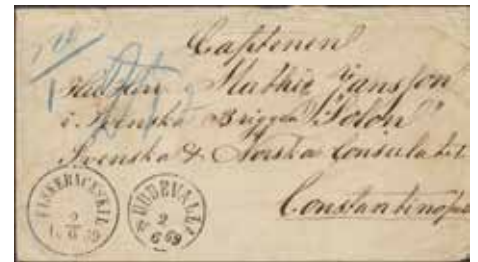 Captenen
Mathis Jansson
i Svenska Briggen "Solon"
Svenska & Norska Consulatet
Constantinopel
FISKEBÄCKSKIL
2
6
UDDEVALLA
2
6 69